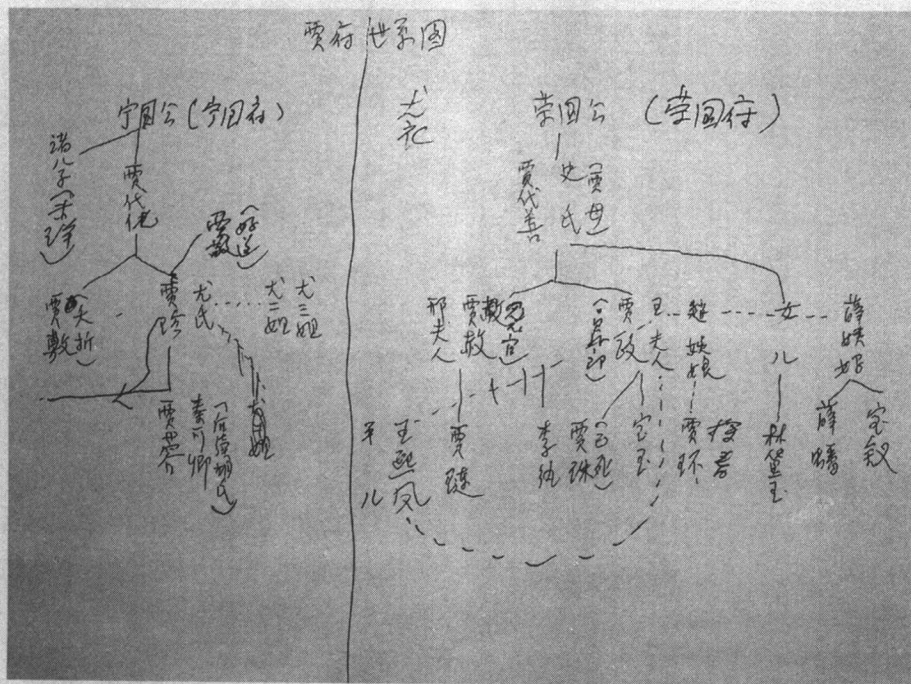 贾府世系图
宁国公(宁国府)
诸儿子(未详)
贾代化
贾敬(好道)
贾敷(夭折)
贾珍
尤氏
尤二姐
尤三姐
贾蓉
秦可卿
尤氏
荣国公(荣国府)
贾代善
史氏(贾母)
邢夫人
贾赦
贾政(员外郎)
王夫人
赵姨娘
女儿
薛姨妈
平儿
王熙凤
贾琏
李纨
贾珠(已死)
宝玉
贾环
探春
林黛玉
薛蟠
宝钗